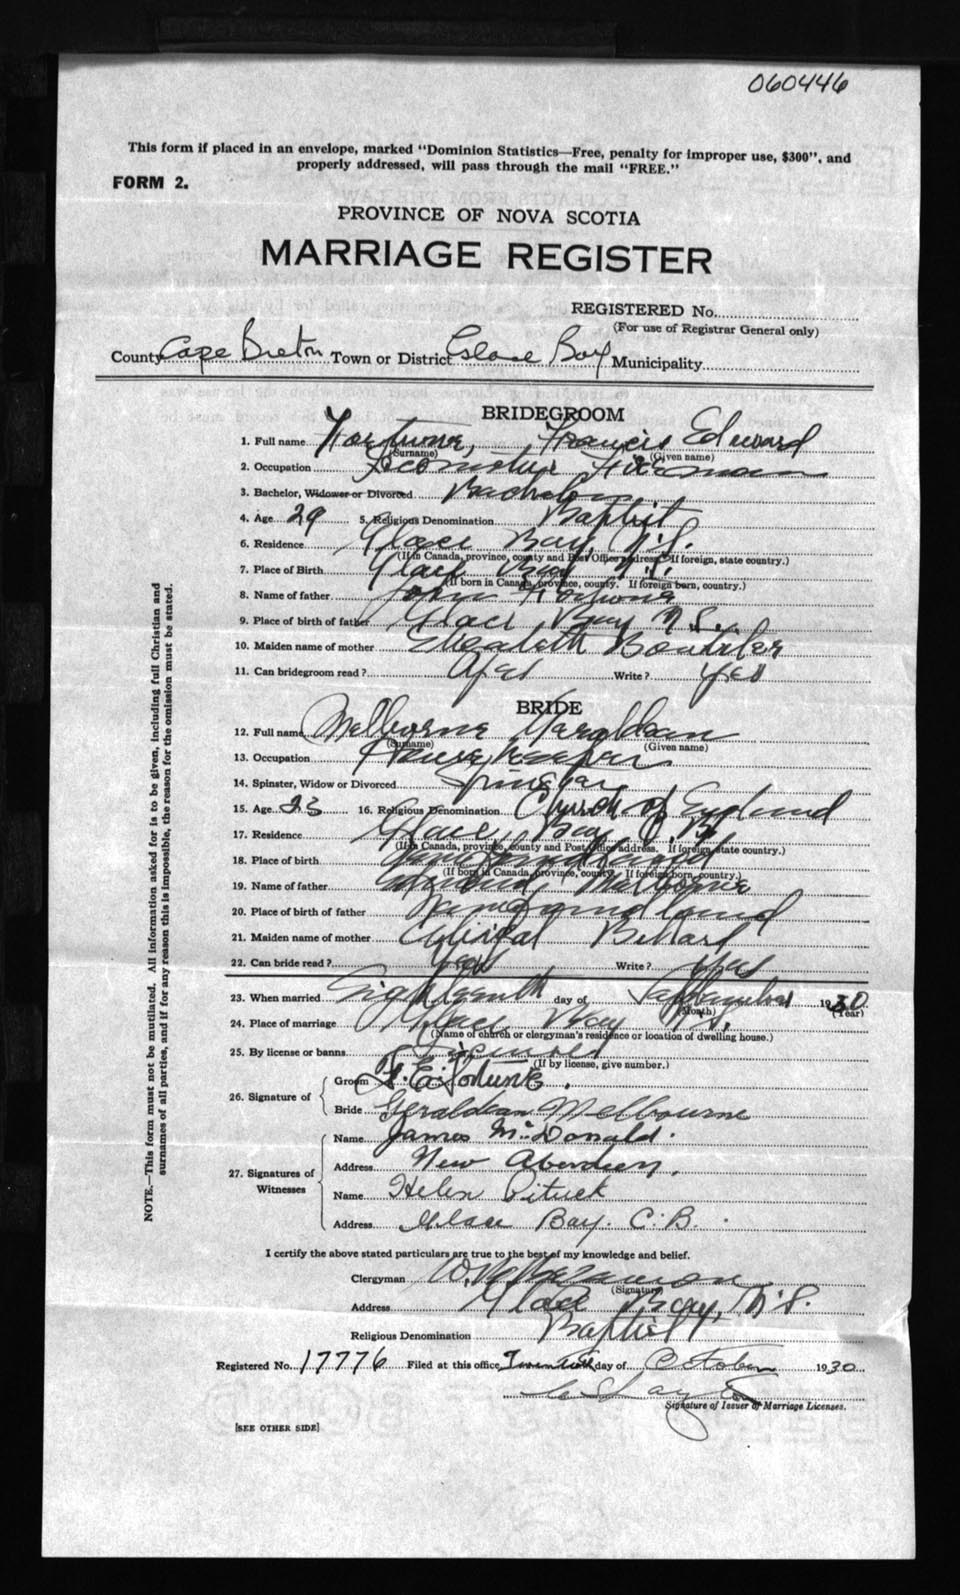 060446
This form if placed in an envelope, marked "Dominion Statistics—Free, penalty for improper use, $300", and
properly addressed, will pass through the mail "FREE."
FORM 2.
PROVINCE OF NOVA SCOTIA
MARRIAGE REGISTER
REGISTERED No.
(For use of Registrar General only)
County Cape Breton Town or District Glace Bay Municipality
BRIDEGROOM
1. Full name Fortune, Francis Edward
(Surname) (Given name)
2. Occupation Locomotive Fireman
3. Bachelor, Widower or Divorced Bachelor
4. Age 29 5. Religious Denomination Baptist
6. Residence Glace Bay, N.S.
(If in Canada, province, county and Post Office address. If foreign, state country.)
7. Place of Birth Glace Bay N.S.
(If born in Canada, province, county. If foreign born, country.)
8. Name of father John Fortune
9. Place of birth of father Glace Bay N.S.
10. Maiden name of mother Elizabeth Boutilier
11. Can bridegroom read? Yes Write? Yes
BRIDE
12. Full name Melborne
(Surname) (Given name)
13. Occupation Housekeeper
14. Spinster, Widow or Divorced Spinster
15. Age 23 16. Religious Denomination Church of England
17. Residence Glace Bay
(If in Canada, province, county and Post Office address. If foreign, state country.)
18. Place of birth Newfoundland
(If born in Canada, province, county. If foreign born, country.)
19. Name of father Melborne
20. Place of birth of father Newfoundland
21. Maiden name of mother
22. Can bride read? Yes Write? Yes
23. When married Eighteenth day of September 1930
(Month) (Year)
24. Place of marriage Glace Bay N.S.
(Name of church or clergyman's residence or location of dwelling house.)
25. By license or banns
(If by license, give number.)
26. Signature of
Groom F. E. Fortune.
Bride Geraldean Melbourne
27. Signatures of Witnesses
Name James McDonald.
Address New Aberdeen.
Name Helen Pituck
Address Glace Bay. C.B.
I certify the above stated particulars are true to the best of my knowledge and belief.
Clergyman
(Signature)
Address Glace Bay, N.S.
Religious Denomination Baptist
Registered No. 17776 Filed at this office Twentieth day of October 1930
Signature of Issuer of Marriage Licenses.
[SEE OTHER SIDE]
NOTE.—This form must not be mutilated. All information asked for is to be given, including full Christian and
surnames of all parties, and if for any reason this is impossible, the reason for the omission must be stated.